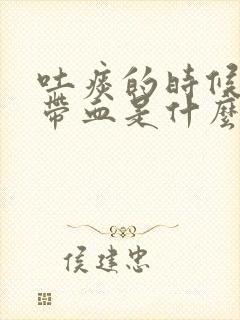 吐痰的時候
帶血是什麼
侯建忠